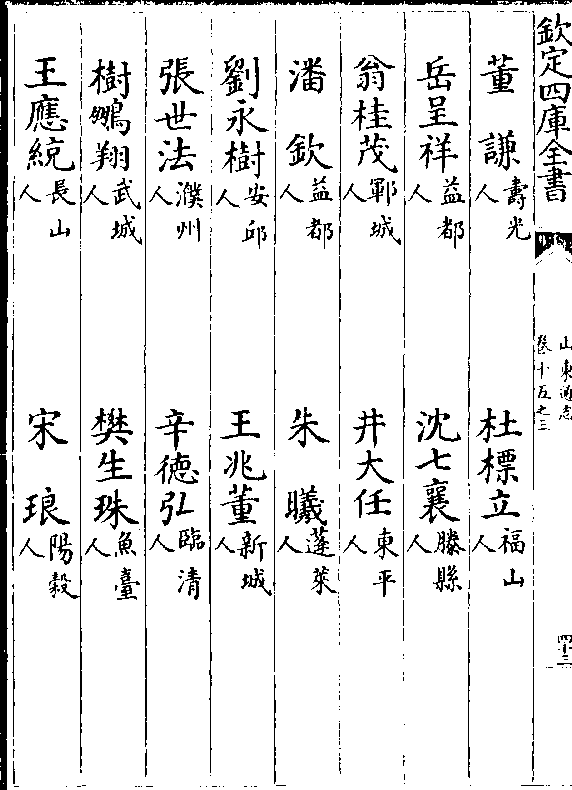 欽定四庫全書
山東通志
卷十五之三
四十三
董謙壽光人 杜標立福山人
岳呈祥益都人 沈七襄滕縣人
翁桂茂鄆城人 井大任東平人
潘欽益都人 朱曦蓬萊人
劉永樹安邱人 王兆董新城人
張世法濮州人 辛德弘臨清人
樹鵬翔武城人 樊生珠魚臺人
王應統長山人 宋琅陽穀人